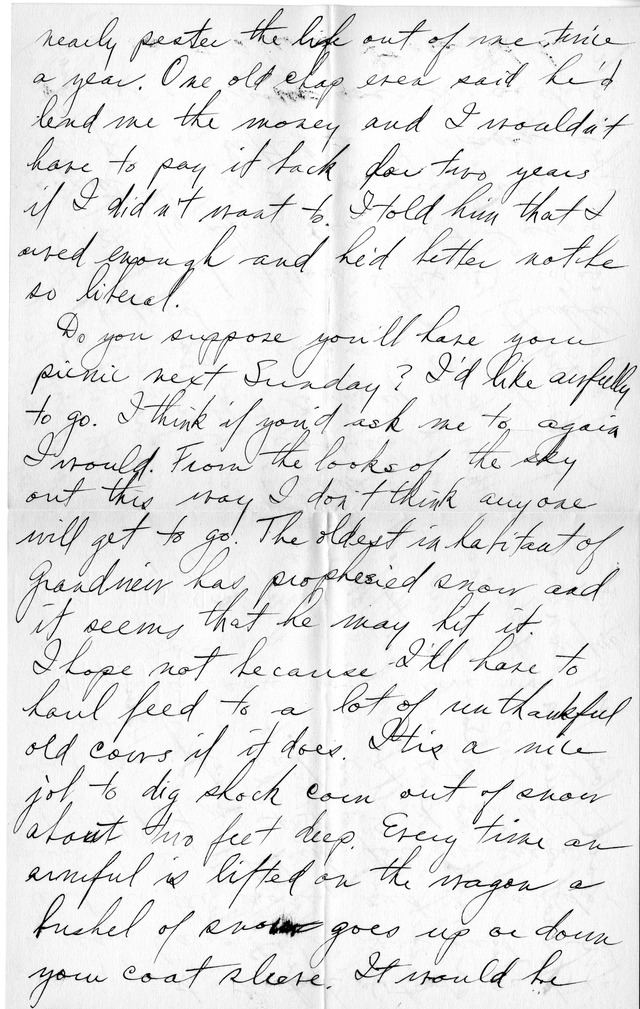 nearly pester the life out of me twice
a year. One old chap even said he'd
lend me the money and I wouldn't
have to pay it back for two years
if I didn't want to. I told him that I
owed enough and he'd better not be
so liberal.
Do you suppose you'll have your
picnic next Sunday? I'd like awfully
to go. I think if you'd ask me to again
I would. From the looks of the sky
out this way I don't think anyone
will get to go. The oldest inhabitant of
Grandview has prophesied snow and
it seems that he may hit it.
I hope not because I'll have to
haul feed to a lot of unthankful
old cows if it does. It is a nice
job to dig shock corn out of snow
about two feet deep. Every time an
armful is lifted on the wagon a
bushel of snow goes up or down
your coat sleeve. It would be